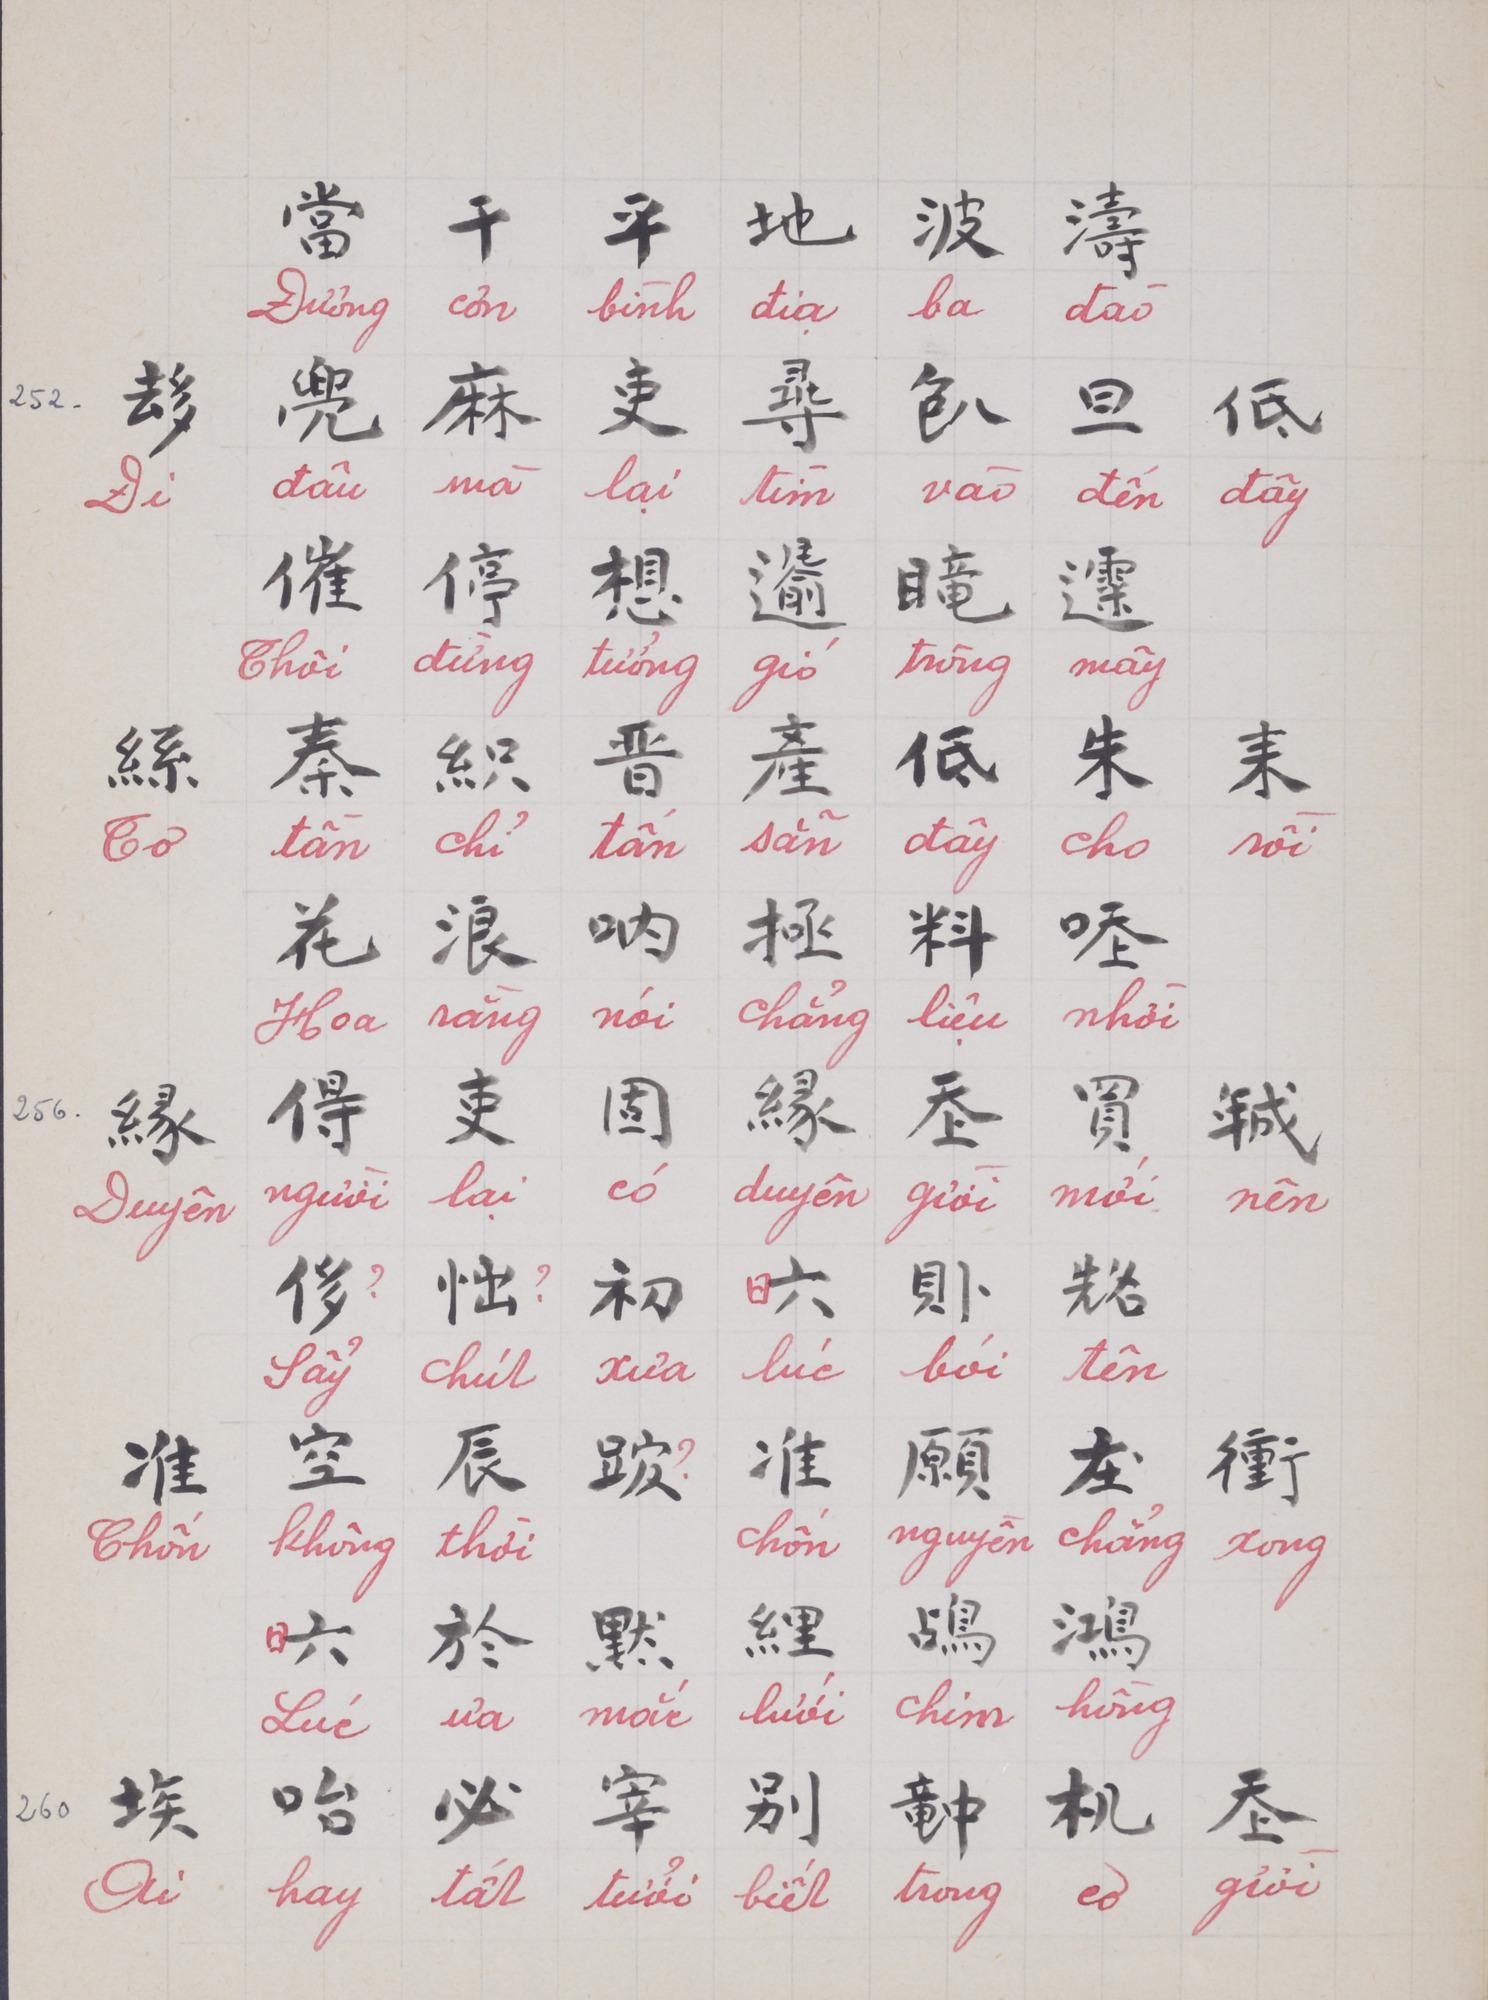 當 干 平 地 波 濤
Đương cơn bình địa ba đào
252. 𠫾 兜 麻 吏 尋 𠓨 旦 低
Đi đâu mà lại tìm vào đến đây
催 停 想 𨔍 𥊣 𨗢
Thôi đừng tưởng gió trông mây
絲 秦 織 晋 產 低 朱 耒
Tơ tần chỉ tấn sẵn đây cho rồi
花 浪 吶 拯 料 𠯪
Hoa rằng nói chẳng liệu nhời
256. 緣 㝵 吏 固 緣 𡗶 買 𢧚
Duyên người lại có duyên giời mới nên
侈? 㤕? 初 日六 貝卜 𠸛
Sẩy chút xưa lúc bói tên
准 空 辰 ? 准 願 庄 衝
Chốn không thời chốn nguyền chẳng xong
日六 於 默 縺 鴣 鴻
Lúc ưa mắc lưới chim hồng
260 埃 咍 必 宰 別 𥪝 机 𡗶
Ai hay tất tưởi biết trong cơ giời